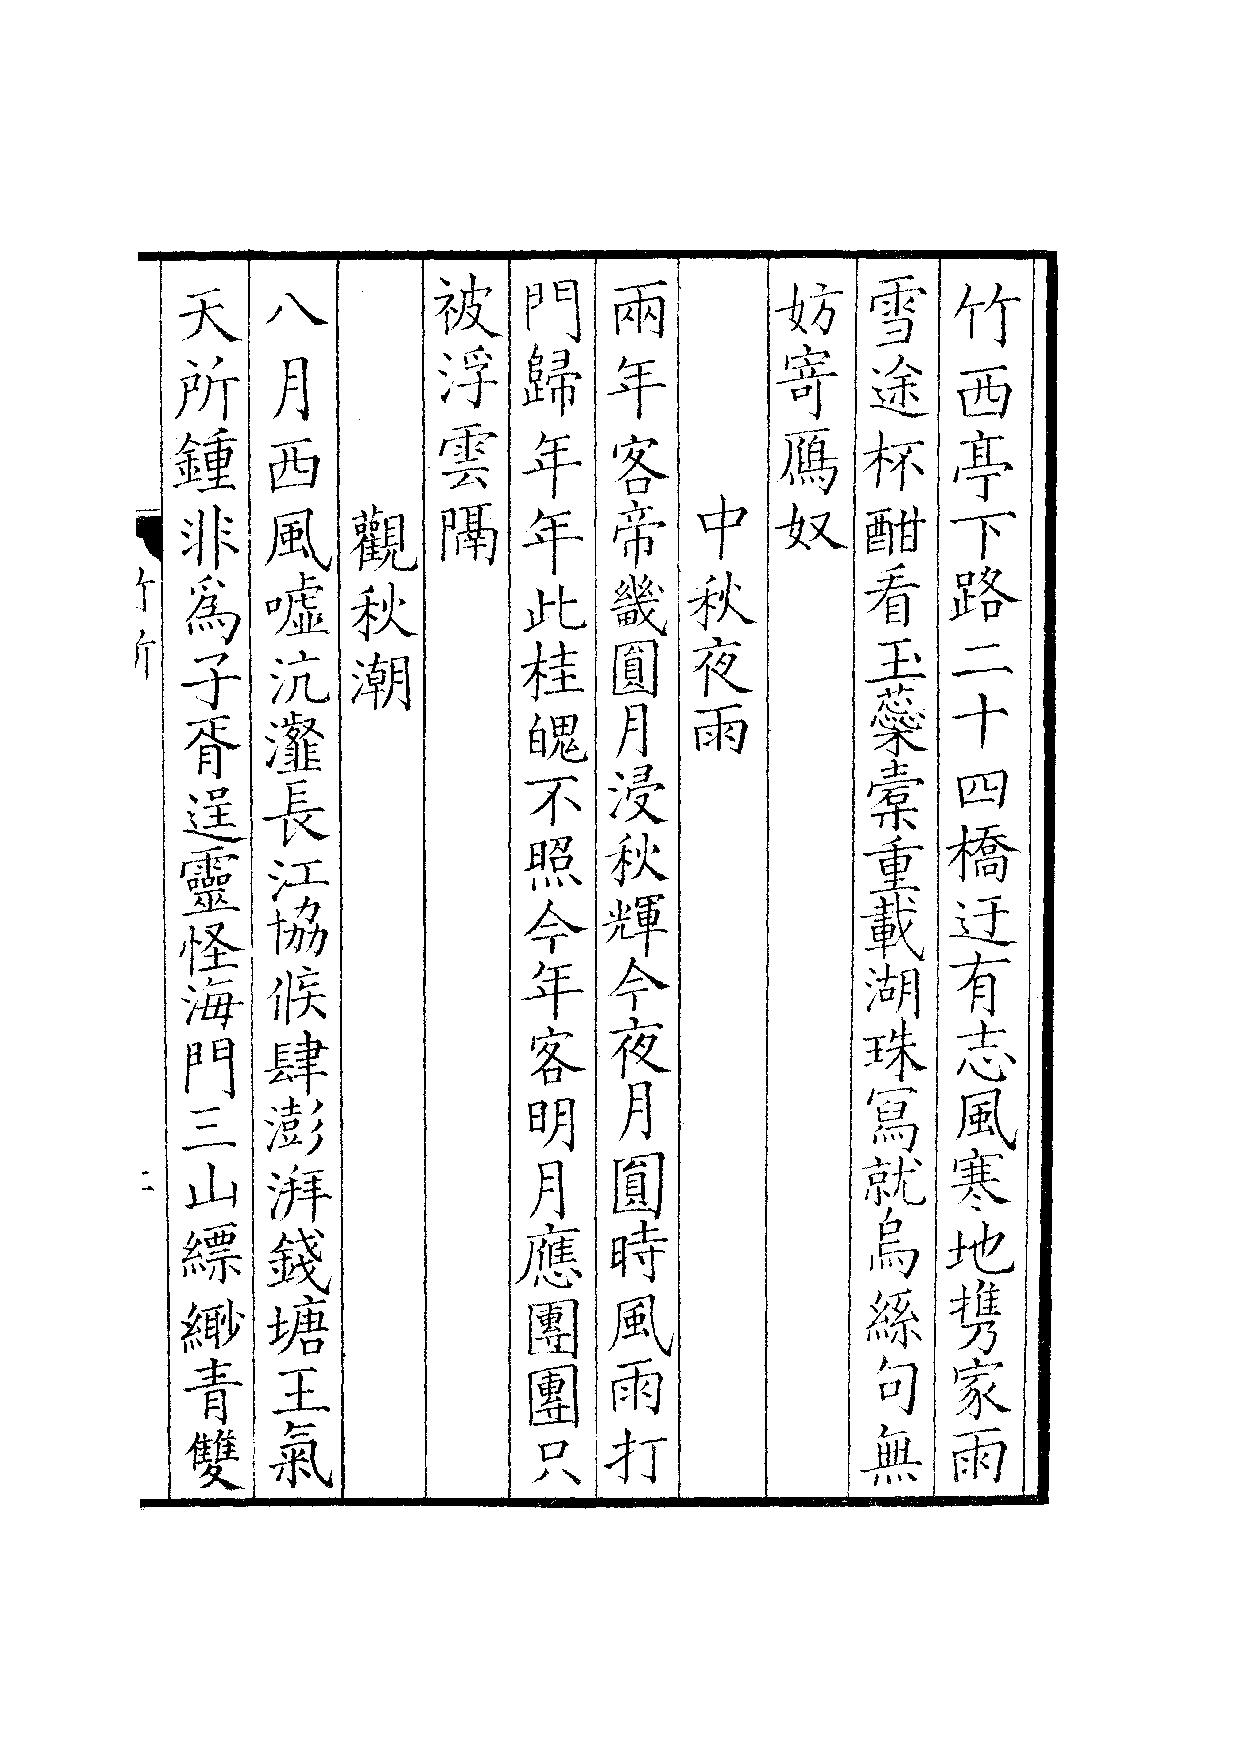 竹西亭下路二十四橋迂有志風寒地携家雨
雪途杯酣看玉蘂槖重載湖珠寫就烏絲句無
妨寄鴈奴
中秋夜雨
兩年客帝畿圓月浸秋輝今夜月圓時風雨打
門歸年年此桂魄不照今年客明月應團團只
被浮雲隔
觀秋潮
八月西風噓沆瀣長江協候肆澎湃錢塘王氣
天所鍾非為子胥逞靈怪海門三山縹緲青雙
竹所